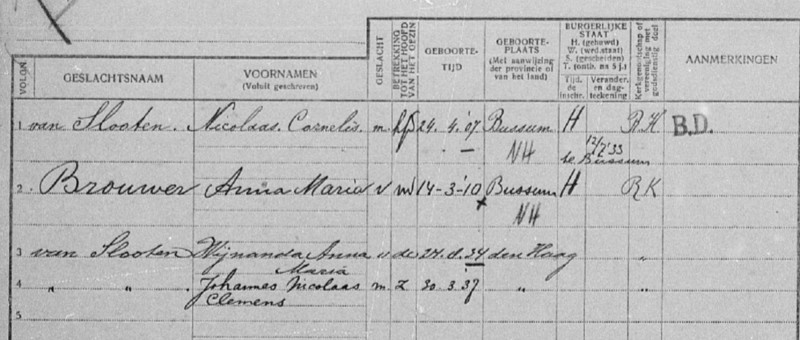 VOLGN.
GESLACHTSNAAM
VOORNAMEN
(Voluit geschreven)
GESLACHT
BETREKKING TOT HET HOOFD VAN HET GEZIN
GEBOORTE-
TIJD
GEBOORTE-
PLAATS
(Met aanwijzing
der provincie of
van het land)
BURGERLIJKE
STAAT
H. (gehuwd)
W. (wed. staat)
S. (gescheiden)
T. (ontb. na 5 j.)
Tijd.
de
inschr.
Verander.
en dag-
teekening
Kerkgenootschap of
vereeniging met
godsdienstig doel
AANMERKINGEN
1 van Slooten. Nicolaas Cornelis. m. hfd 24. 4.'07 Bussum H R.K B.D.
NH 12/7 '33
te Bussum
2 Brouwer Anna Maria v 14-3-'10 Bussum H RK
NH
3 van Slooten Wijnanda Anna v de 34 den Haag "
Maria
4 " " . Johannes Nicolaas m. z 30.3.37 " "
Clemens
5